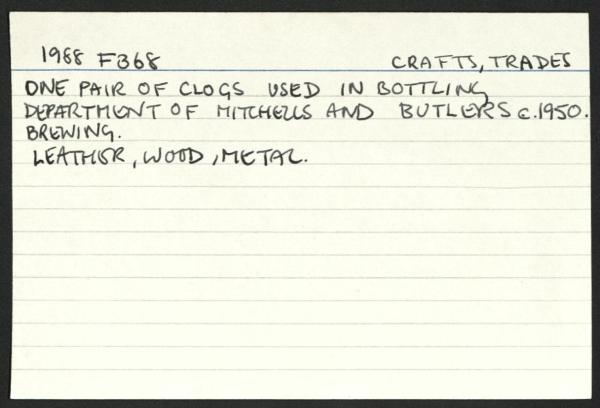 1988 F368 CRAFTS, TRADES
ONE PAIR OF CLOGS USED IN BOTTLING
DEPARTMENT OF MITCHELLS AND BUTLERS c.1950.
BREWING.
LEATHER, WOOD, METAL.